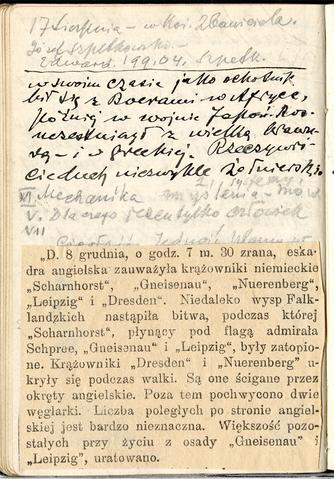 17 Sierpnia – w
Józef Szpetkowski –
Edward 199.04. Szpetk.
w swoim czasie jako ochotnik
bił się z Boerami w Afryce,
później w wojnie Japoń. Ros
uczestniczył z wielką brawu
rą – i w Greckiej. Rzeczywi-
duch niezwykle żołnierski
VI Mechanika myślenia –
V. Dlaczego jeden tylko człowiek
VII
„D. 8 grudnia, o godz. 7 m. 30 zrana, eska-
dra angielska zauważyła krążowniki niemieckie
„Scharnhorst", „Gneisenau", „Nuerenberg",
„Leipzig" i „Dresden". Niedaleko wysp Falk-
landzkich nastąpiła bitwa, podczas której
„Scharnhorst", płynący pod flagą admirała
Schpree, „Gneisenau" i „Leipzig", były zatopio-
ne. Krążowniki „Dresden" i „Nuerenberg" u-
kryły się podczas walki. Są one ścigane przez
okręty angielskie. Poza tem pochwycono dwie
węglarki. Liczba poległych po stronie angiel-
skiej jest bardzo nieznaczna. Większość pozo-
stałych przy życiu z osady „Gneisenau" i
„Leipzig", uratowano.